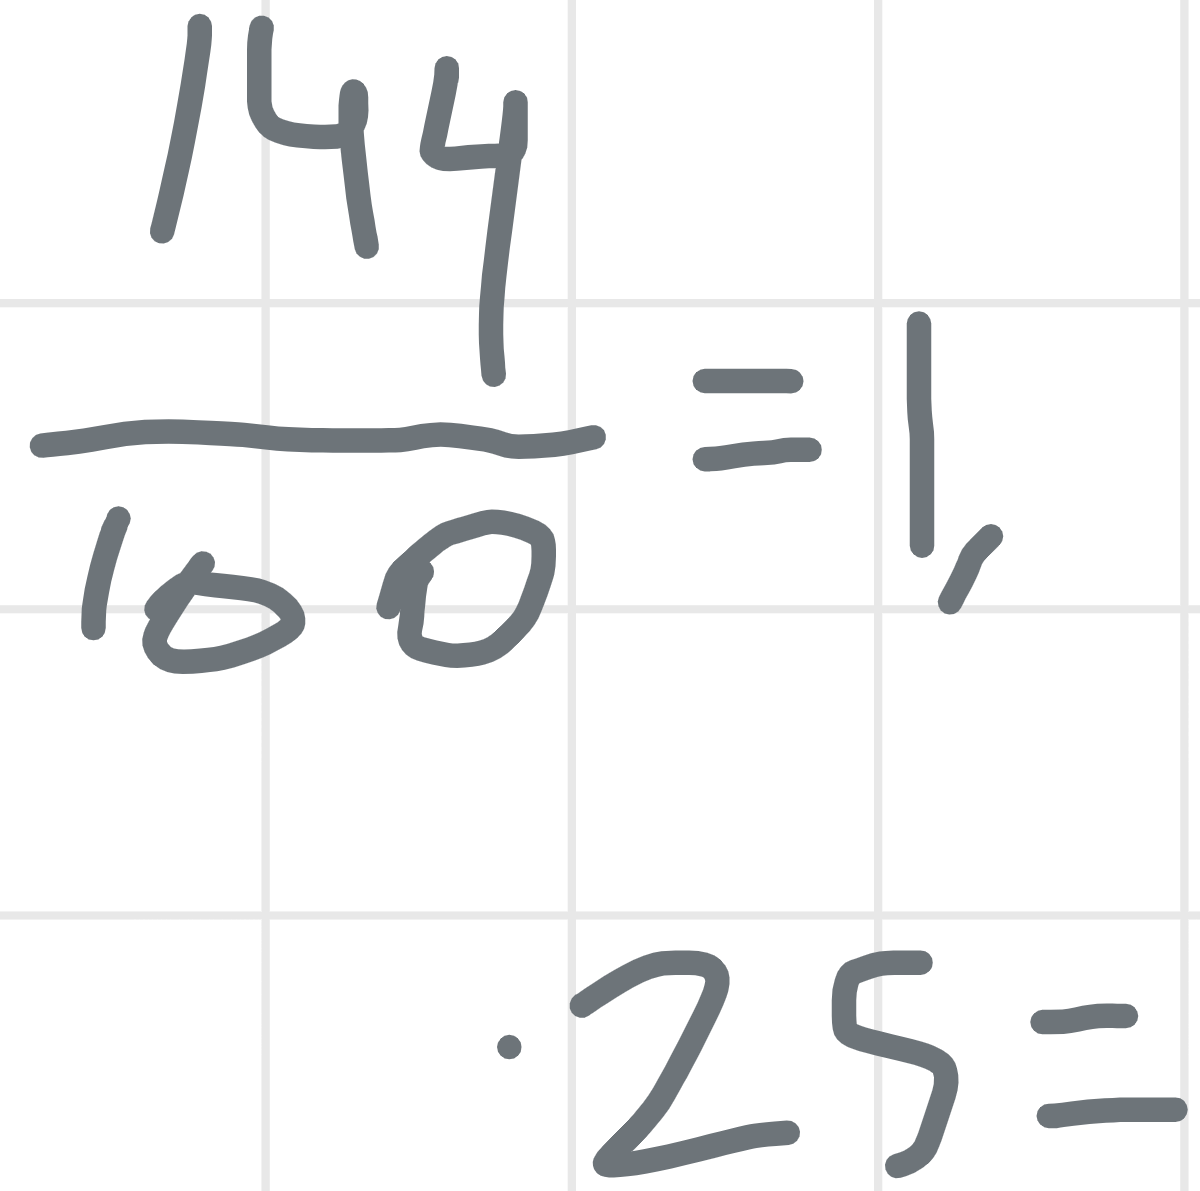 144
100 = 1,
· 25 =